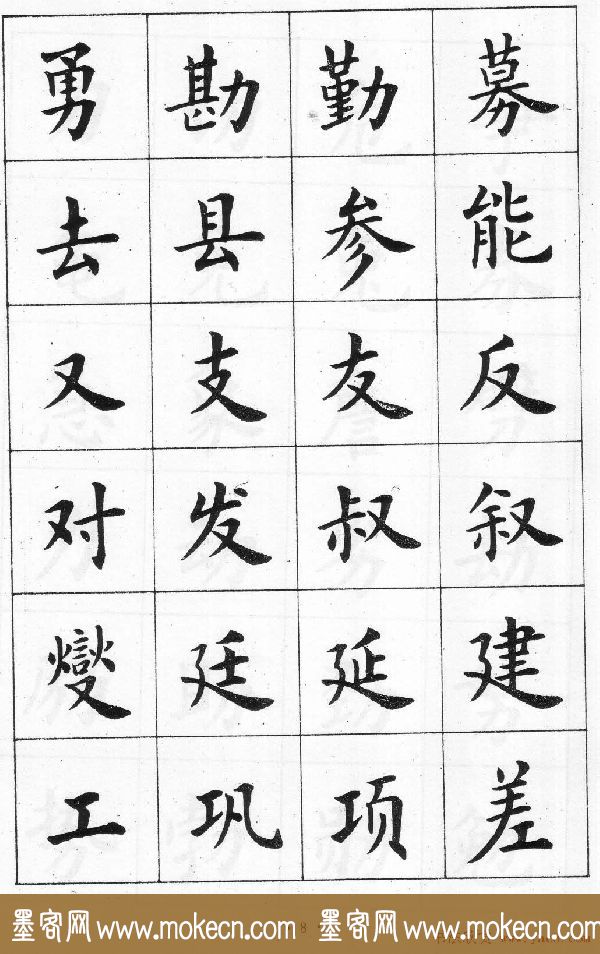 勇 勘 勤 募
去 县 参 能
又 支 友 反
对 发 叔 叙
燮 廷 延 建
工 巩 项 差
墨客网 www.mokecn.com 墨客网 www.mokecn.com 墨客网 www.mokecn.com
8